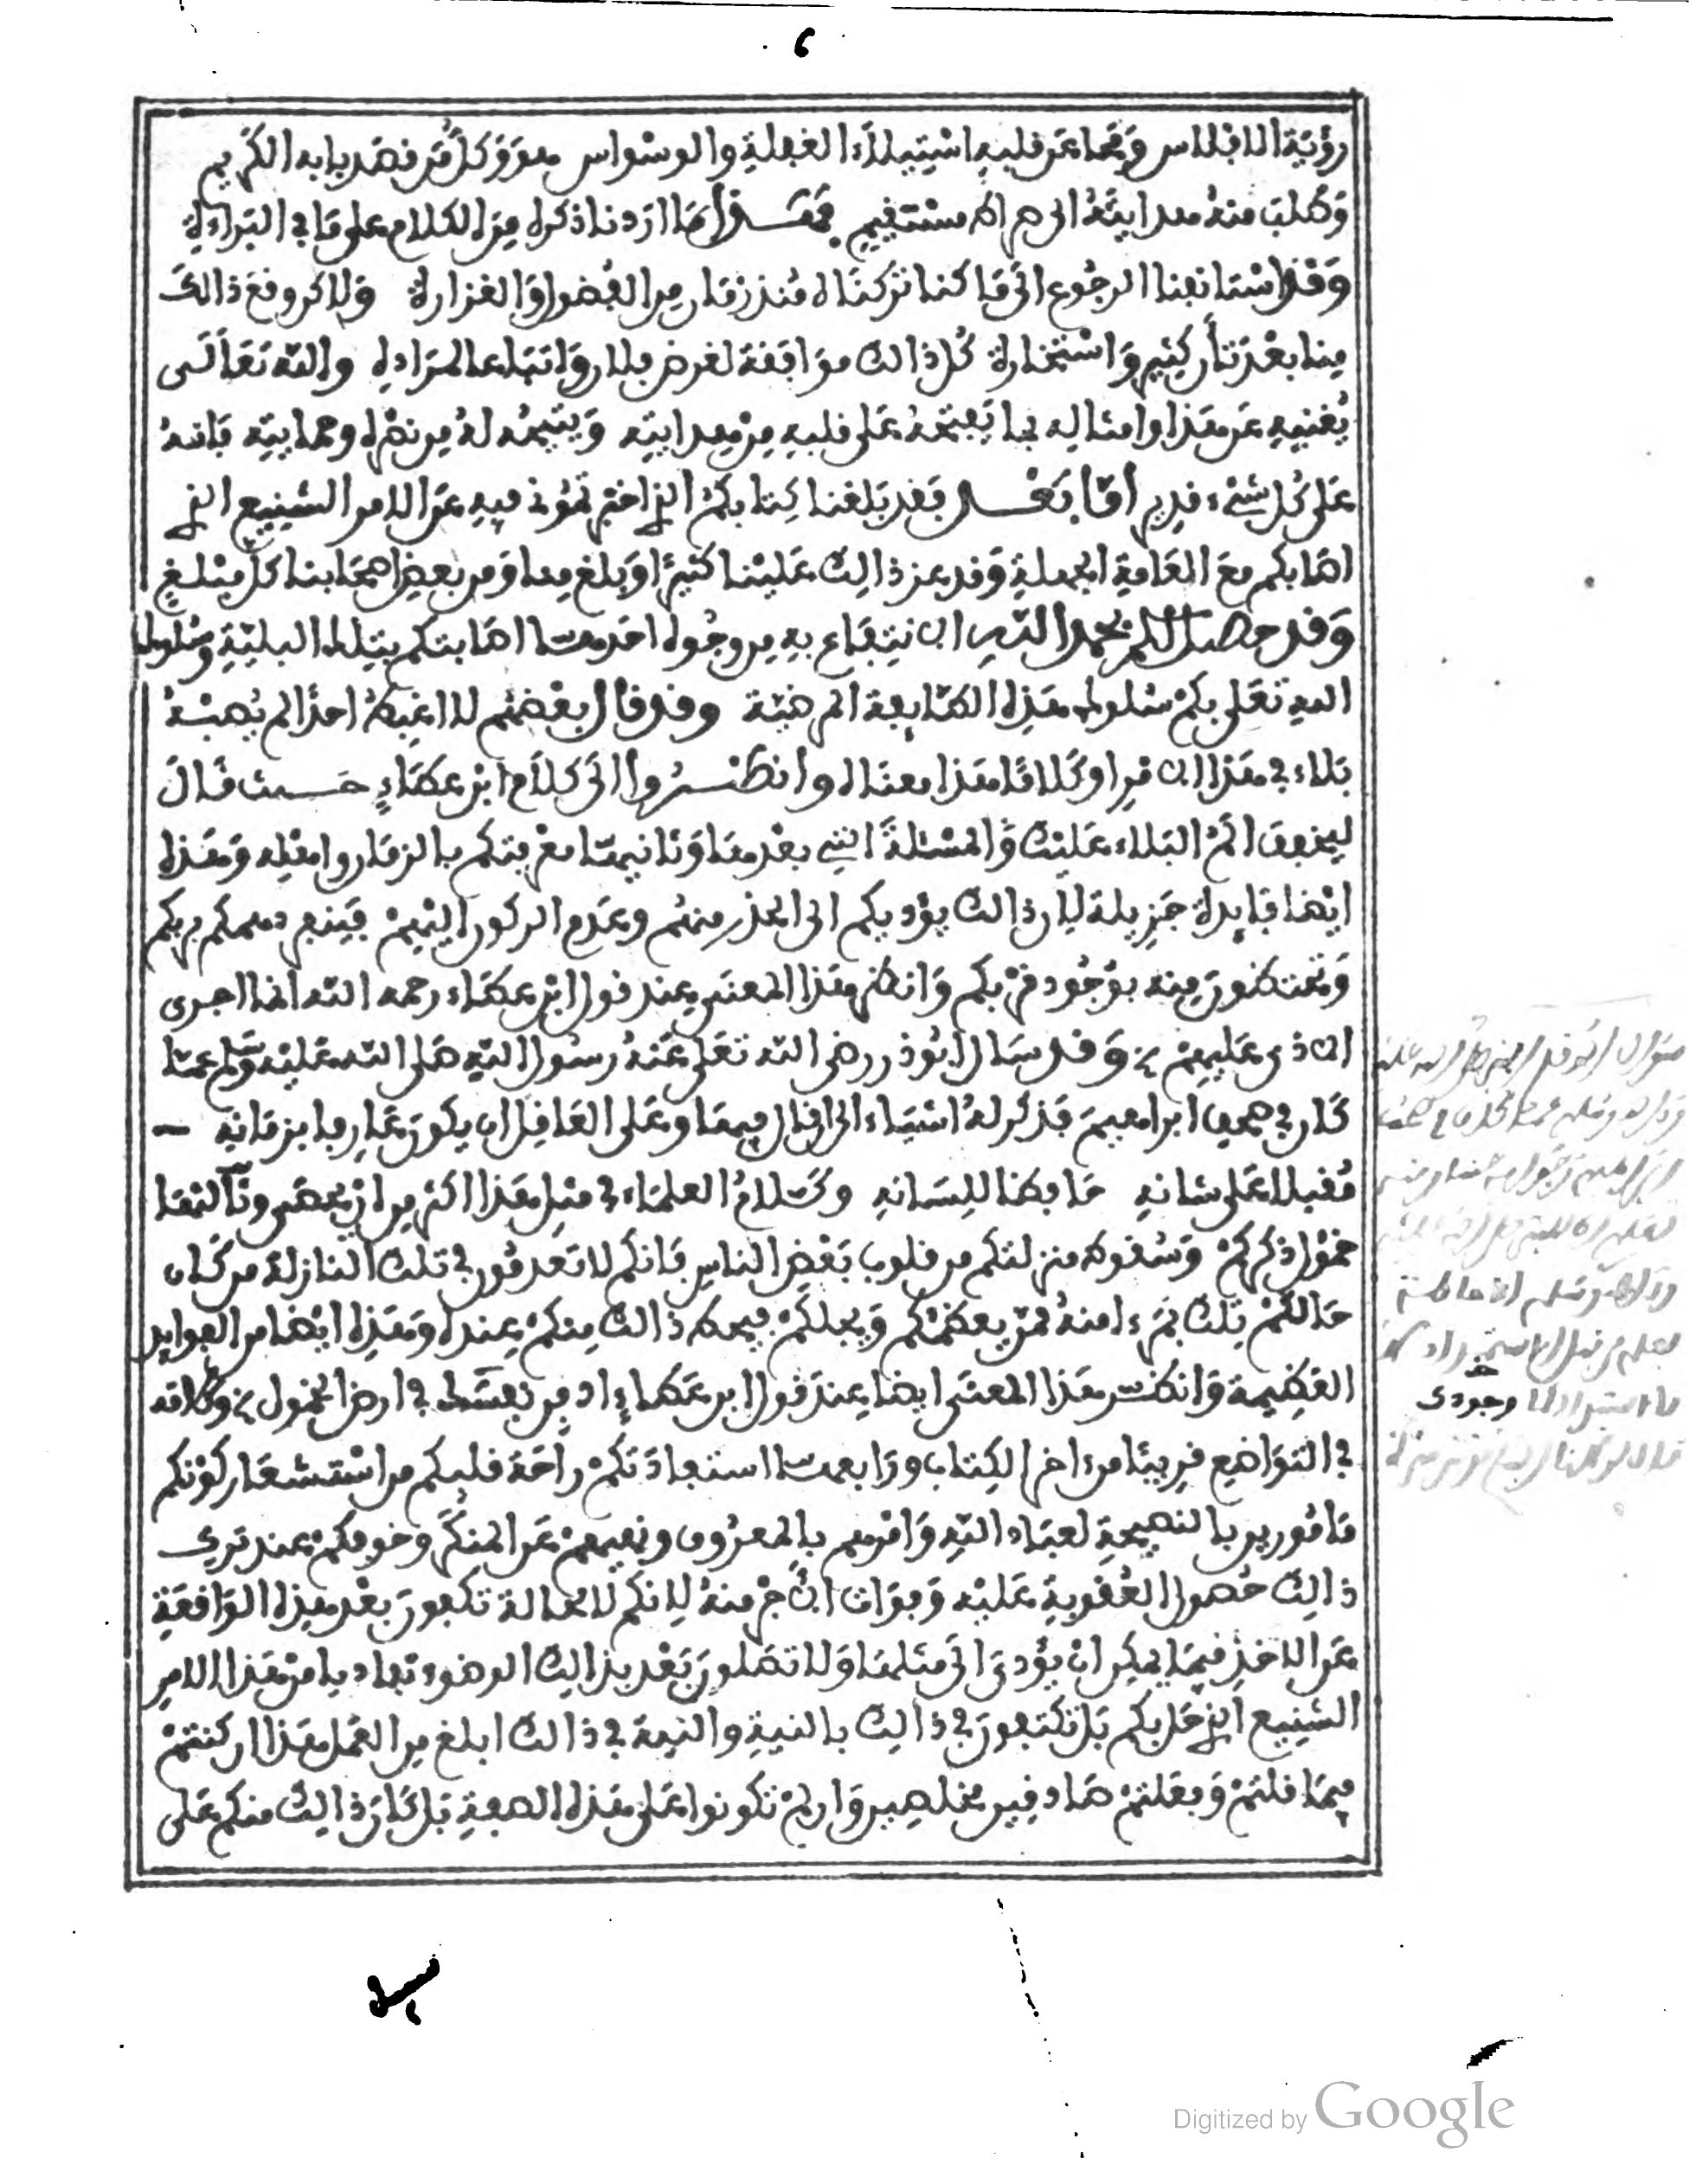 6
رؤية الافلاس ومحا عن قلبه استيلاء الغفلة والوسواس هو وكل من قصد بابه الكريم
وطلب منه هدايته الى صراط مستقيم فقد اما اردنا ذكره من الكلام على ما في البراءة
وقد استانفنا الرجوع الى ما كنا تركناه منذ زمان من الفضول والغزارة ولاكن وقع ذالك
منا بعد تأن كثير واستخارة كل ذالك موافقة لغرض فلان واتباعا لمراده والله تعالى
يغنيه عن هذا وامثاله بما يفتحه على قلبه من هدايته ويتيحه له من نصره وحمايته فانه
على كل شيء قدير اما بعد فقد بلغنا كتابكم الذي اخبرتمونا فيه عن الامر الشنيع الذي
اصابكم مع العامة الجهلة وقد عز ذالك علينا كثيرا وبلغ منا ومن بعض اصحابنا كل مبلغ
وقد حصل لكم بحمد الله الانتفاع به من وجوه احدها اصابتكم بتلك البلية وسلوك
الله تعلى بكم سلوك هذه الطايفة المرضية وقد قال بعضهم لا اغبط احدا لم يصبه
بلاء في هذا الامر او كلاما هذا معناه وانظروا الى كلام ابن عطاء حيث قال
ليخفف الم البلاء عليك والمسئلة التي بعدها وثانيها معرفتكم بالزمان واهله وهذه
ايضا فايدة جزيلة لان ذالك يؤديكم الى الحذر منهم وعدم الركون اليهم فينبع دمعكم بربكم
وتحتظون منه بوجود قربكم وانظر هذا المعنى عند قول ابن عطاء رحمه الله انما اجرى
الاذى عليهم وقد سال ابو ذر رضي الله تعلى عنه رسول الله صلى الله عليه وسلم عما
كان في صحف ابراهيم فذكر له اشياء الى ان قال فيها وعلى العاقل ان يكون عارفا بزمانه
مقبلا على شانه حافظا للسانه وكلام العلماء في مثل هذا اكثر من ان يحصى وثالثها
خمول ذكركم وسقوط منزلتكم من قلوب بعض الناس فانكم لا تعدمون في تلك النازلة من كان
حالكم تلك بمراء منه ممن يعظمكم ويجلكم فيحط ذالك منكم عنده وهذه ايضا من الفوايد
العظيمة وانظر هذا المعنى ايضا عند قول ابن عطاء ادفن نفسك في ارض الخمول وكلامه
في التواضع قريبا من اخر الكتاب ورابعها استفادتكم راحة قلبكم من استشعار كونكم
مامورين بالنصيحة لعباد الله وامرهم بالمعروف ونهيهم عن المنكر وخوفكم عند تركـ
ذالك حصول العقوبة عليه وفوات الاجر منه لانكم لا محالة تكفون بعد هذه الواقعة
عن الاخذ فيما يمكن ان يؤدي الى مثلها ولا تصلون بعد بذالك الوضوء تفاديا من هذا الامر
الشنيع الذي حل بكم بل تكتفون في ذالك بالنية والنية في ذالك ابلغ من العمل هذا ان كنتم
فيما قلتم وفعلتم صادقين مخلصين وان لم تكونوا على هذه الصفة بل كان ذالك منكم على
وجودى
Digitized by Google